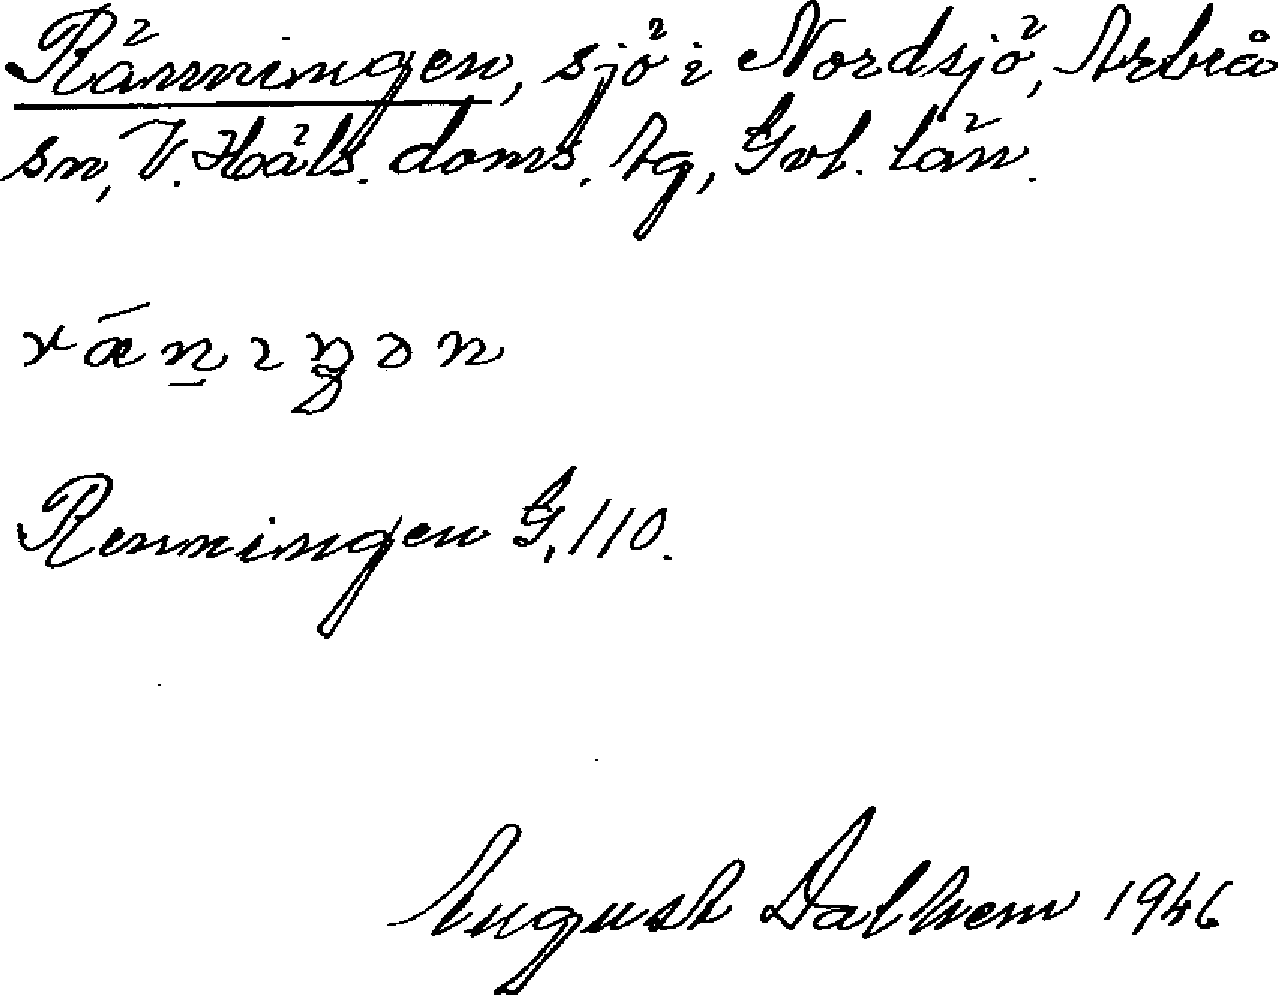 Ränningen, sjö i Nordsjö, Arbrå
sn, V. Häls. doms. tg, Gvl. län.
rǽn̠ıŋən
Renningen G, 110.
August Dalhem 1946